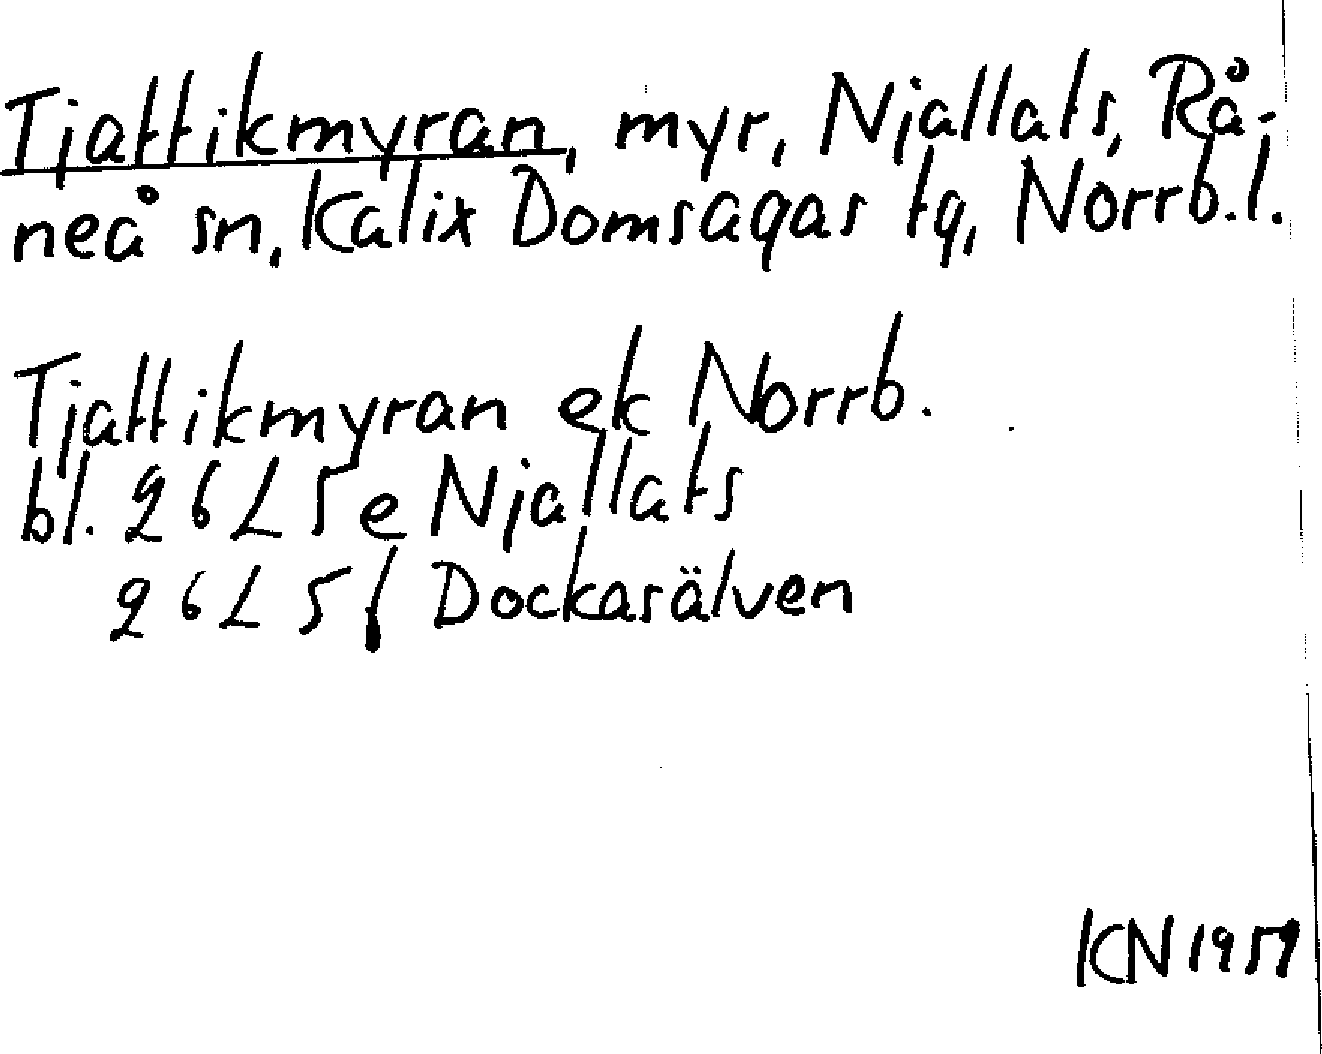 Tjattikmyran, myr, Njallats, Rå-
neå sn, Kalix Domsagas tg, Norrb.l.
Tjattikmyran ek Norrb.
bl. 26 L 5 e Njallats
26 L 5 f Dockasälven
KN 1959